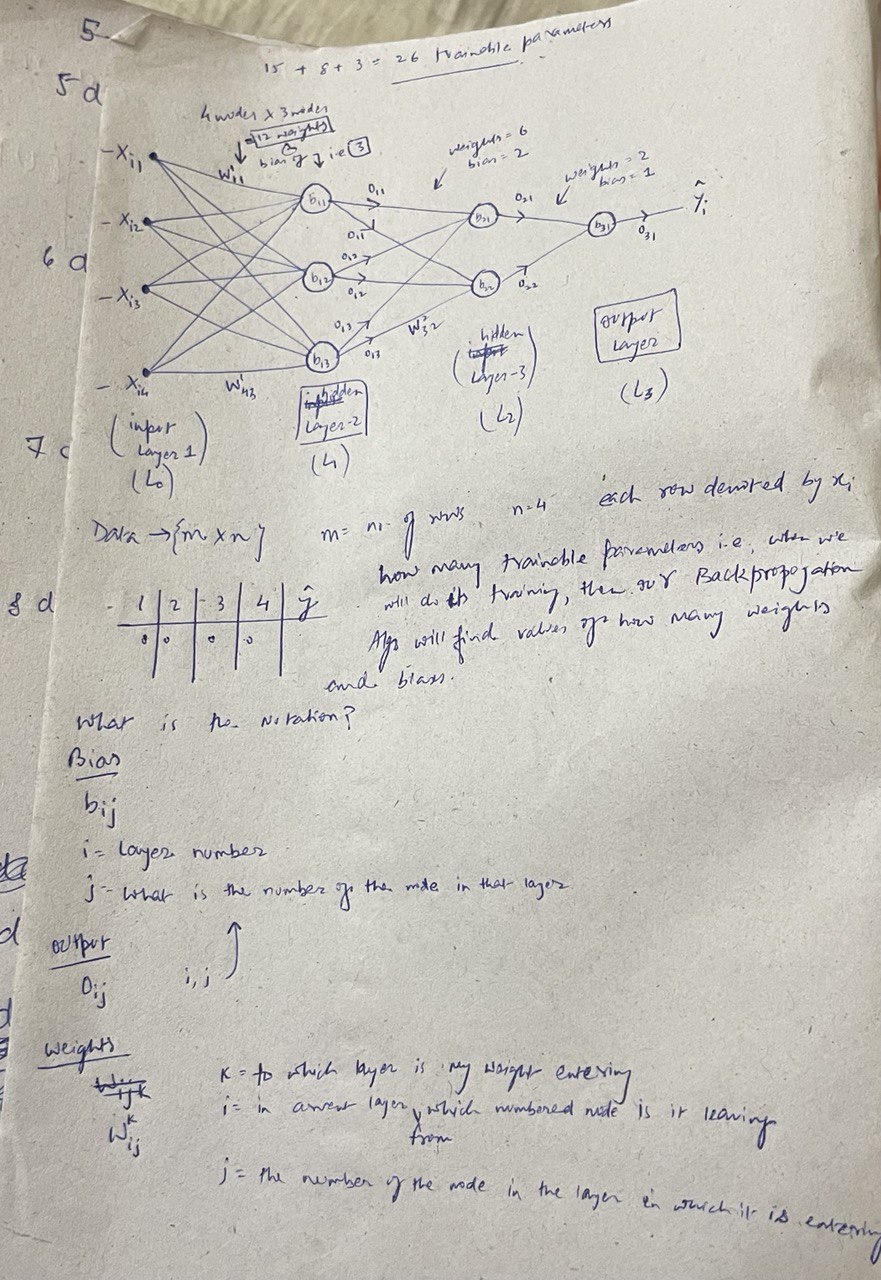 5
15 + 8 + 3 = 26 trainable parameters
5 d
4 nodes x 3 nodes
= 12 weights
bias of i.e 3
weights = 6
bias = 2
weights = 2
bias = 1
- Xi1
W¹11
b11
O11
O11
b21
O21
b31
O31
ŷi
- Xi2
6 d
b12
O12
O12
b22
O22
- Xi3
O13
O13
W²32
b13
- Xi4
W¹43
(input Layer 1)
(L0)
hidden
Layer-2
(L1)
(hidden
Layer-3)
(L2)
output
Layer
(L3)
7 c
Data → {m x n} m = no. of rows n=4 each row denoted by xi
how many trainable parameters i.e, when we
will do its training, then our Backpropogation
Algo will find values of how many weights
and biass.
8 d
1 | 2 | 3 | 4 | ŷ
0 0 0 0
What is the Notation?
Bias
bij
i = Layer number
j - What is the number of the node in that layer
d
output
Oij i, j
d
Weights
Wᵏij
K = to which layer is my weight entering
i = in current layer, which numbered node is it leaving
from
j = the number of the node in the layer in which it is entering